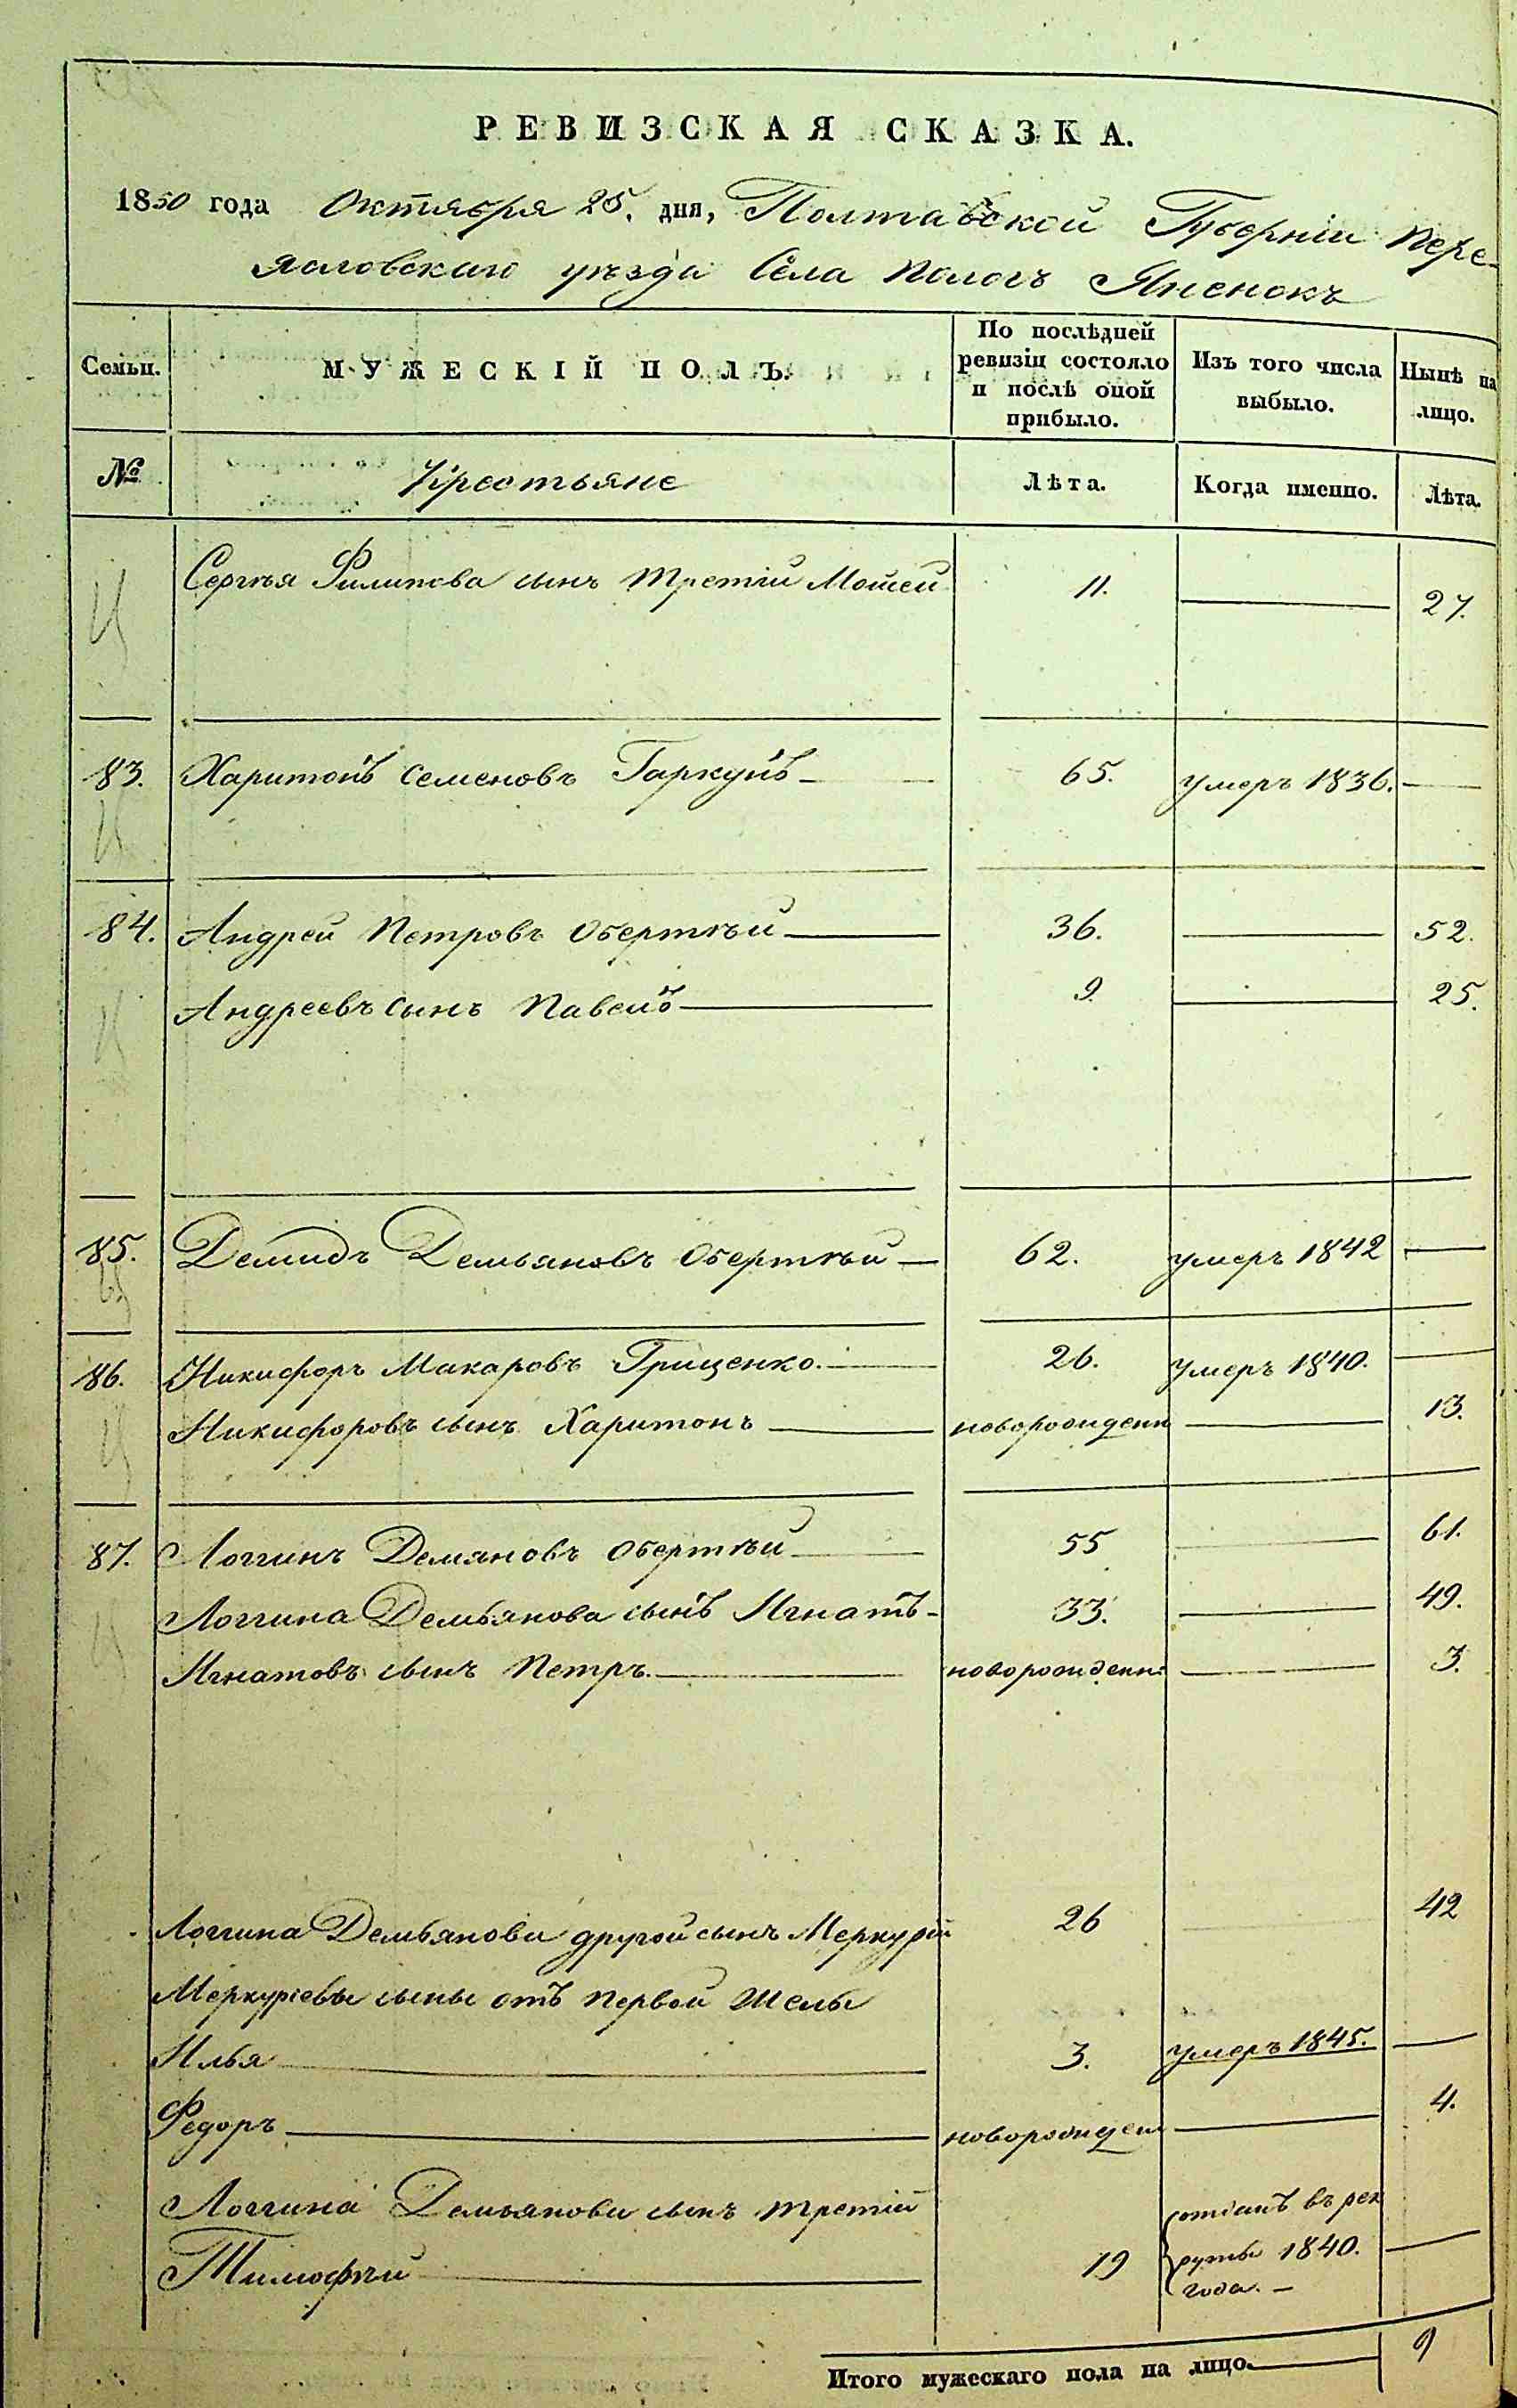 РЕВИЗСКАЯ СКАЗКА.
1850 года Октября 25. дня, Полтавской Губерніи Пере-
яславскаго уѣзда Села Пологъ Яненокъ
Семьи. МУЖЕСКІЙ ПОЛЪ. По послѣдней ревизіи состояло и послѣ оной прибыло. Изъ того числа выбыло. Нынѣ на лицо.
№ Крестьяне Лѣта. Когда именно. Лѣта.
Сергѣя Филипова сынъ третій Мойсей 11. 27.
83. Харитонъ Семеновъ Гаркунъ 65. умеръ 1836.
84. Андрей Петровъ Обертѣй 36. 52.
Андреевъ сынъ Павелъ 9. 25.
85. Демидъ Демьяновъ Обертѣй 62. умеръ 1842
86. Никифоръ Макаровъ Гриценко. 26. умеръ 1840.
Никифоровъ сынъ Харитонъ новорожденн 13.
87. Логгинъ Демяновъ Обертѣй 55 61.
Логгина Демьянова сынъ Игнатъ 33. 49.
Игнатовъ сынъ Петръ. новорожденн 3.
Логгина Демьянова другой сынъ Меркурій 26 42
Меркуріевы сыны отъ первой жены
Илья 3. умеръ 1845.
Федоръ новорожден 4.
Логгина Демьянова сынъ третій
Тимофѣй 19 отданъ въ рек
руты 1840.
года.
Итого мужескаго пола на лицо. 9